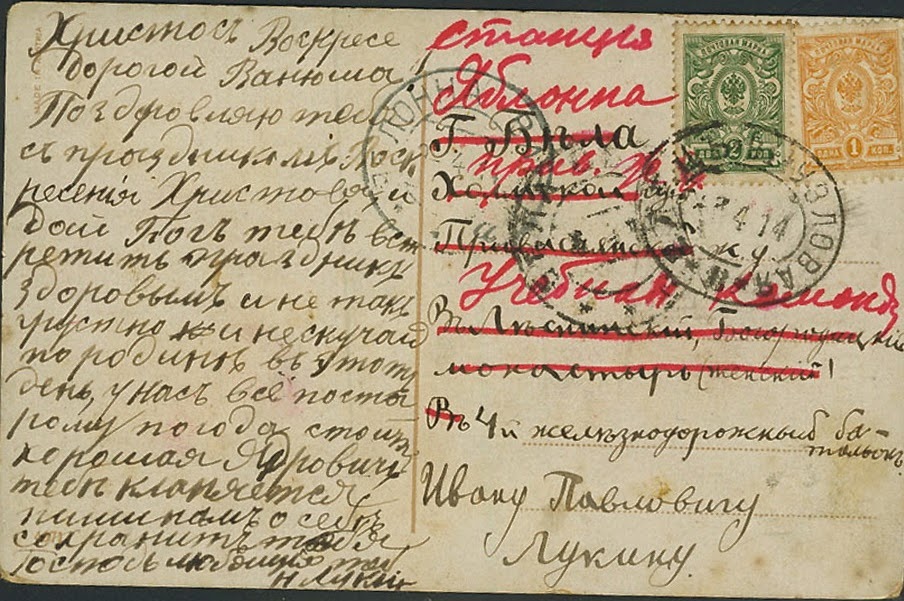 Христосъ Воскресе
дорогой Ванюша
Поздровляю тебя
съ праздникамъ Воск
ресенія Христова и
дай Богъ тебѣ вст
ретить праздникъ
здоровымъ и не такъ
грустно и не скучай
по родинѣ въ этотъ
день, у насъ всё поста
рому погода стоитъ
хорошая
тебѣ кланяется
пиши намъ о себѣ
сохранитъ тебя
Господь любящій тебя
Н Лукин
станція
Яблонна
Г. Бѣла
прив. ж. д.
Холмской губ.
Привислянской ж. д.
Учебная команда
Въ Лѣснинский, Богородицкій
монастырь (женский)
Въ 4й желѣзнодорожный ба-
тальонъ
Ивану Павловичу
Лукину.
ПОЧТОВАЯ МАРКА
2 КОП.
ПОЧТОВАЯ МАРКА
ОДНА 1 КОП.
УЗЛОВАЯ
4 14